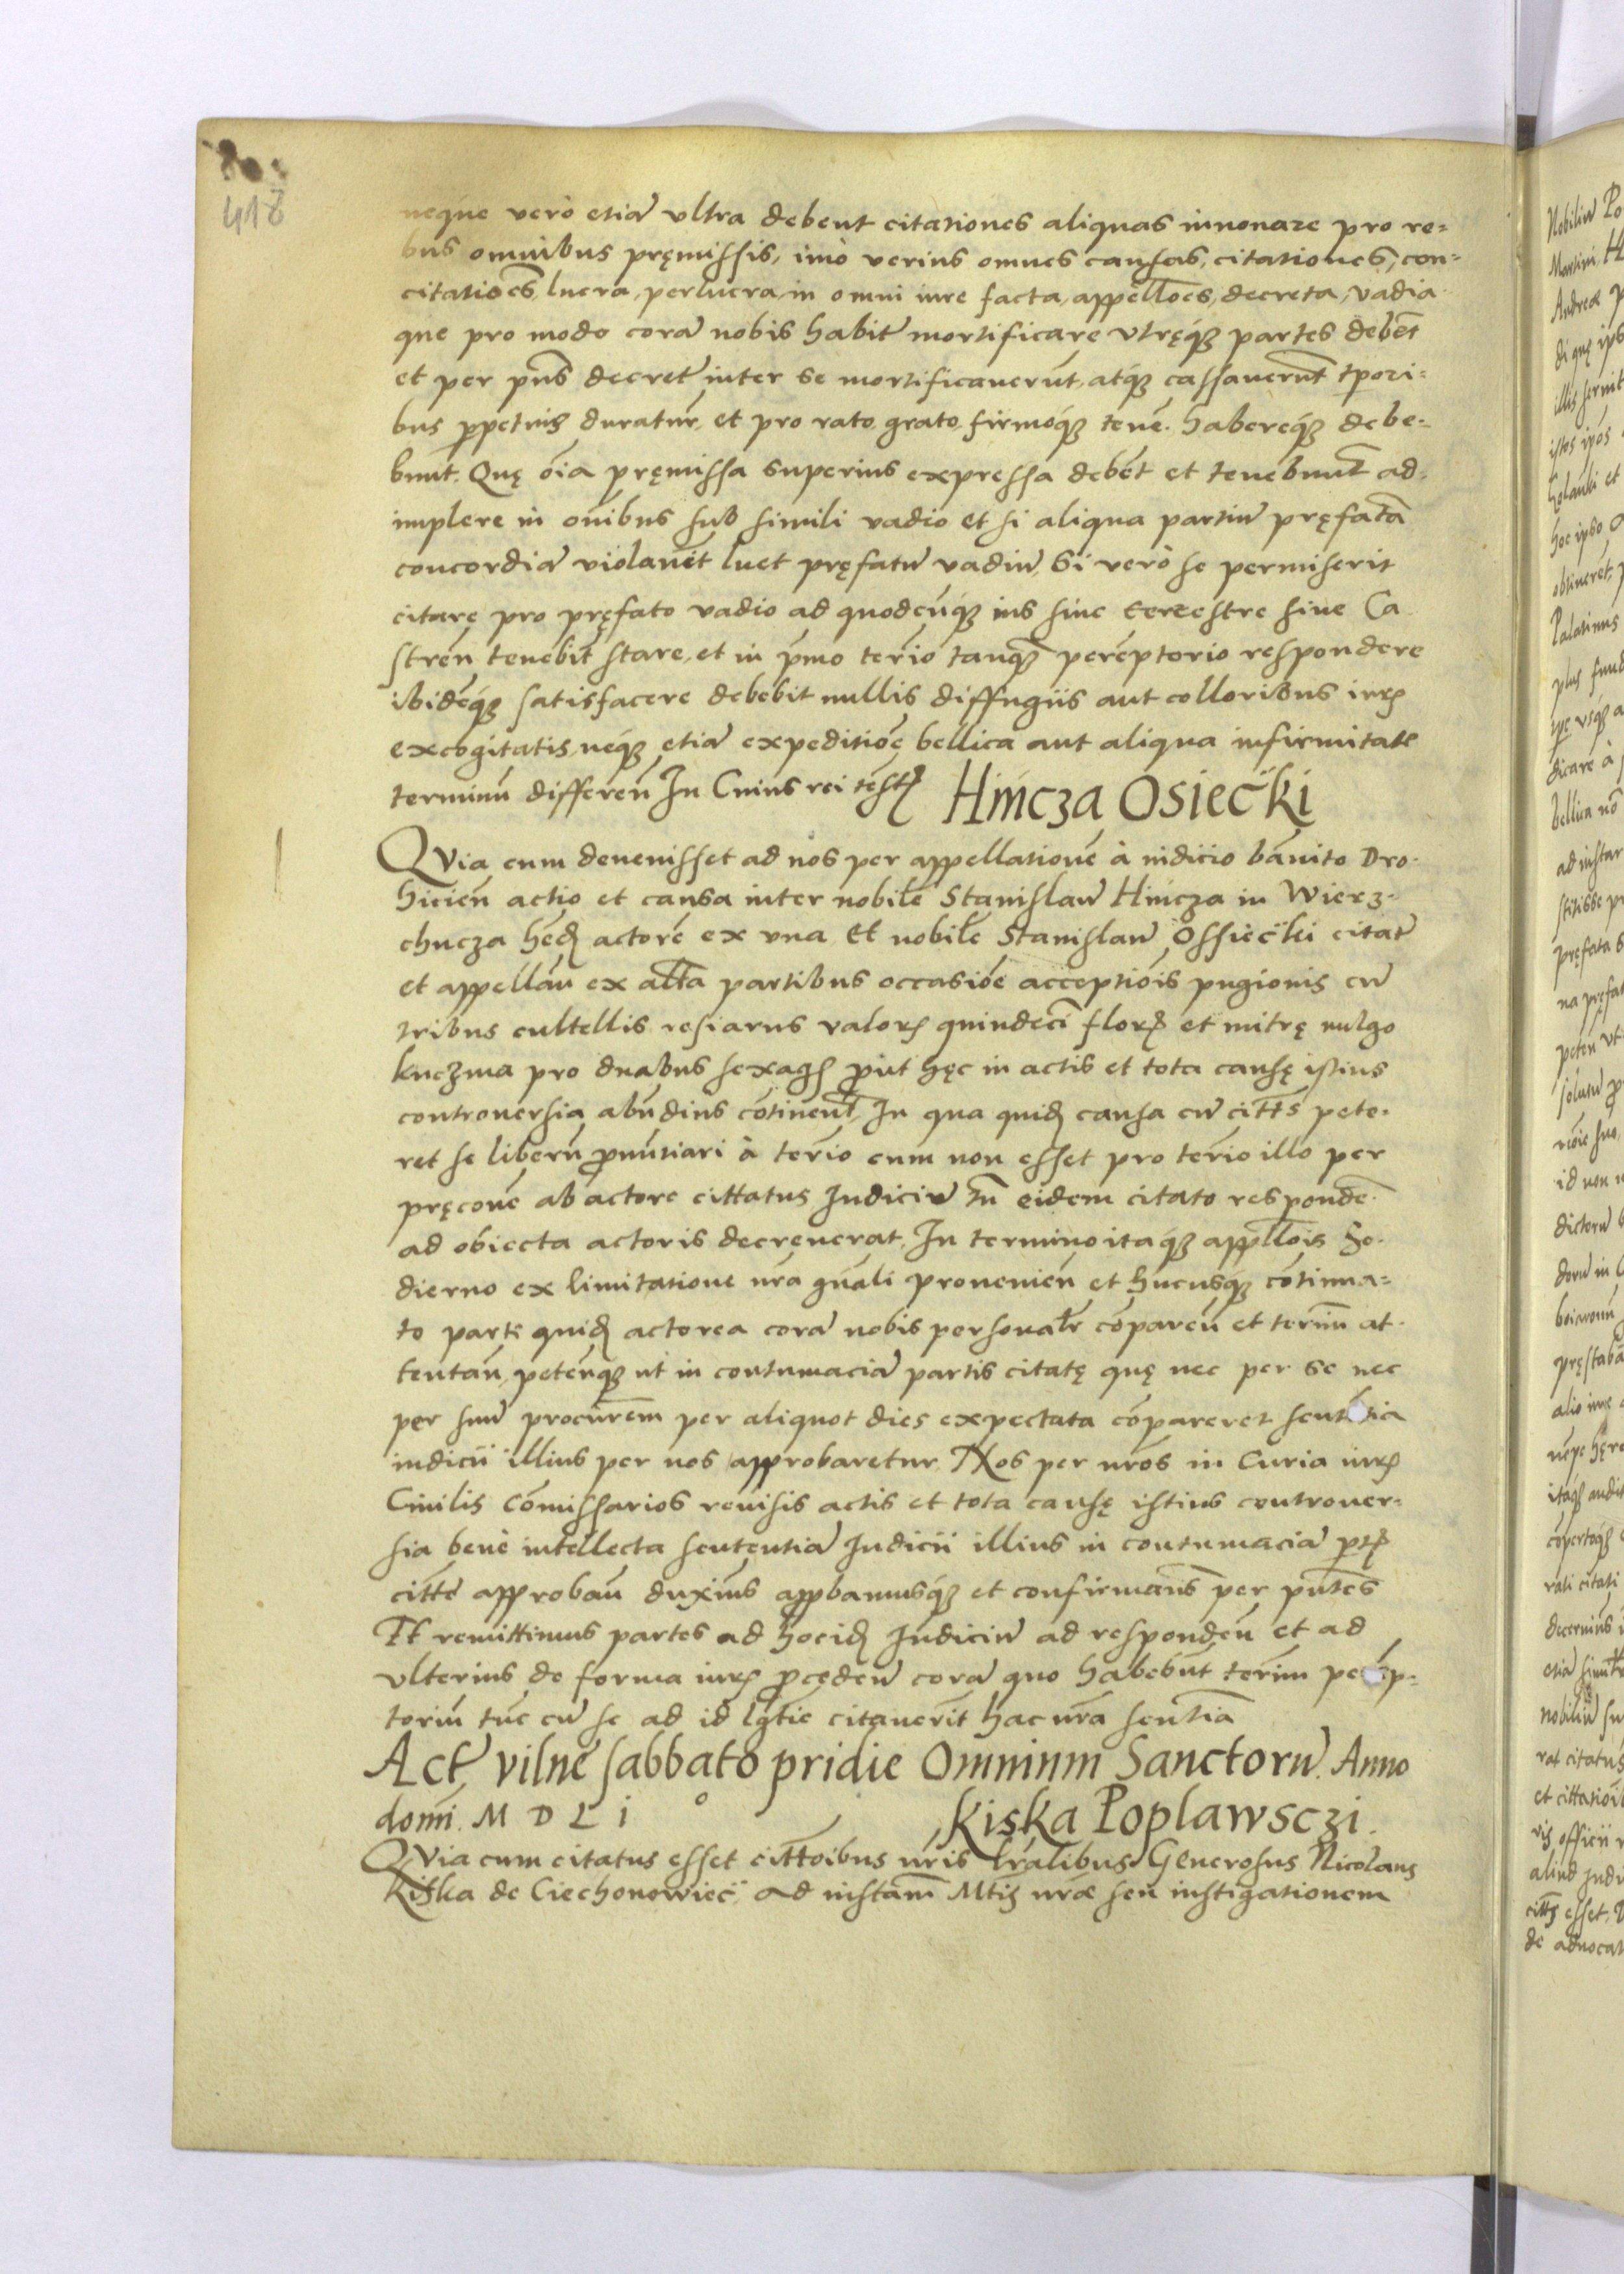 418
neque verò etiā vltra debent citationes aliquas innouare pro re=
bus omnibus pręmissis, imò verius omnes causas, citationes, con=
citatiōēs, lucra, perlucra, in omni iure facta, appellōēs, decreta, vadia
que pro modo corā nobis habitā mortificare vtręqȝ partes debēt
et per pn̄s decretū inter se mortificauerūt, atqȝ cassauerunt tp̄ori=
bus p̄petuis duratur̄, et pro rato, grato, firmoqȝ tenē. habereqȝ debe=
bunt. Quę ōīa pręmissa superius expressa debēt et tenebunt̄ ad=
implere in ōnibus sub simili vadio et si aliqua partiū pręfatā
concordiā violauēit luet pręfatū vadiū, Si verò se permiserit
citare pro pręfato vadio ad quodcūqȝ ius siue terrestre siue Ca
stren̄ tenebit̄ stare, et in p̄mo ter̄io tanqȝ perēptorio respondere
ibidēqȝ satisfacere debebit nullis diffugiis aut colloribus iur̄
excogitatis, neqȝ etiā expeditiōē bellica aut aliqua infirmitate
terminū differen̄ In Cuius rei test̄ Hincza Osiecki
QVia cum deuenisset ad nos per appellationē à iudicio bānito Dro=
hicien̄ actio et causa inter nobilē Stanislaū Hincza in Wierz=
chucza hēd̄ actorē ex vna Et nobilē Stanislaū Ossiecki citatū
et appellan̄ ex alt̄a partibus occasiōē acceptiōis pugionis cū
tribus cultellis resiarus valor̄ quindecī flor̄ et mitrę vulgo
kuczma pro duabus sexaḡ p̄ut hęc in actis et tota causę istius
controuersia abūdius cōtinent̄ In qua quid̄ causa cū citt̄s pete=
ret se liberū p̄nūtiari à ter̄io cum non esset pro ter̄io illo per
pręconē ab actore cittatus Iudiciū tn̄ eidem citato respondē=
ad obiecta actoris decreuerat. In termino itaqȝ appellōis ho=
dierno ex limitatione nr̄a gn̄ali prouenien̄ et hucusqȝ cōtinua=
to parte quid̄ actorea corā nobis personalr̄ cōparen̄ et termīn at=
tentan̄, petenqȝ ut in contumaciā partis citatę quę nec per se nec
per suū procur̄em per aliquot dies expectata cōpareret sententia
iudicii illius per nos approbaretur Nos per nr̄os in Curia iur̄
Ciuilis Cōmissarios reuisis actis et tota causę istius controuer=
sia benè intellecta sententiā Iudicii illius in contumaciā p̄t̄
citt̄e approban̄ duximus app̄bamusqȝ et confirmam̄s per pn̄tes
Et remittimus partes ad hocid̄ Iudiciū ad responden̄ et ad
vlterius de forma iur̄ p̄ceden̄ corā quo habebūt ter̄im perēp=
toriū tūc cū se ad id lḡtie citauerīt hac nr̄a sentīa
Act̄ vilnē sabbato pridie Omnium Sanctorū. Anno
domī. M D L i° Kiska Poplawsczi.
QVia cum citatus esset citt̄oibus nr̄is lr̄alibus Generosus Nicolaus
Kiska de Ciechonowiec̄. ad instam̄ Mt̄is nr̄æ seu instigationem